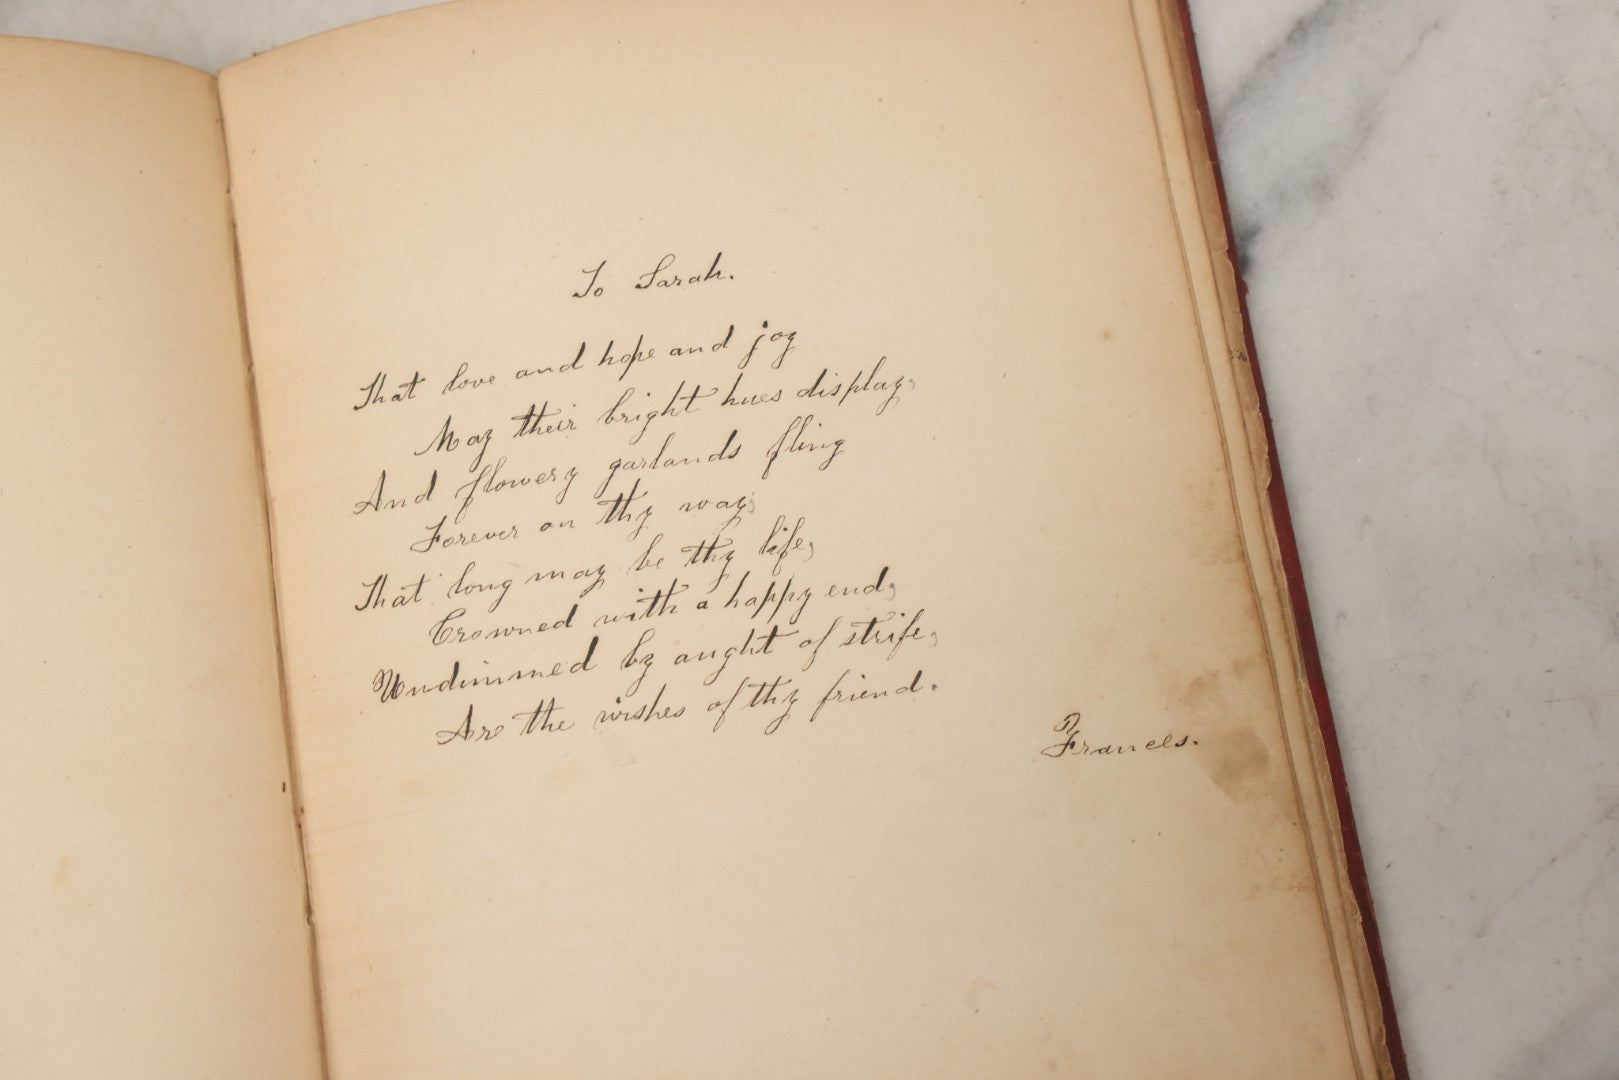 To Sarah.
That love and hope and joy
May their bright hues display,
And flowery garlands fling
Forever on thy way;
That long may be thy life,
Crowned with a happy end,
Undimmed by aught of strife,
Are the wishes of thy friend.
Frances.